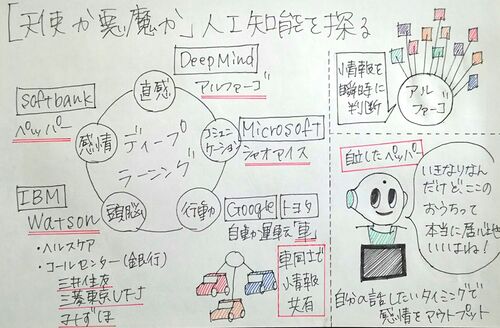 「天使か悪魔か」人工知能を探る
DeepMind
アルファーゴ
直感
Softbank
ペッパー
感情
ディープ
ラーニング
コミュニ
ケーション
Microsoft
シャオアイス
IBM
Watson
頭脳
行動
Google トヨタ
自動運転「車」
・ヘルスケア
・コールセンター(銀行)
三井住友
三菱東京UFJ
みずほ
車同士で
情報
共有
情報を
瞬時に
判断
アル
ファーゴ
自立したペッパー
いきなりなん
だけどここの
おうちって
本当に居心地
いいはね!
自分の話したいタイミングで
感情をアウトプット